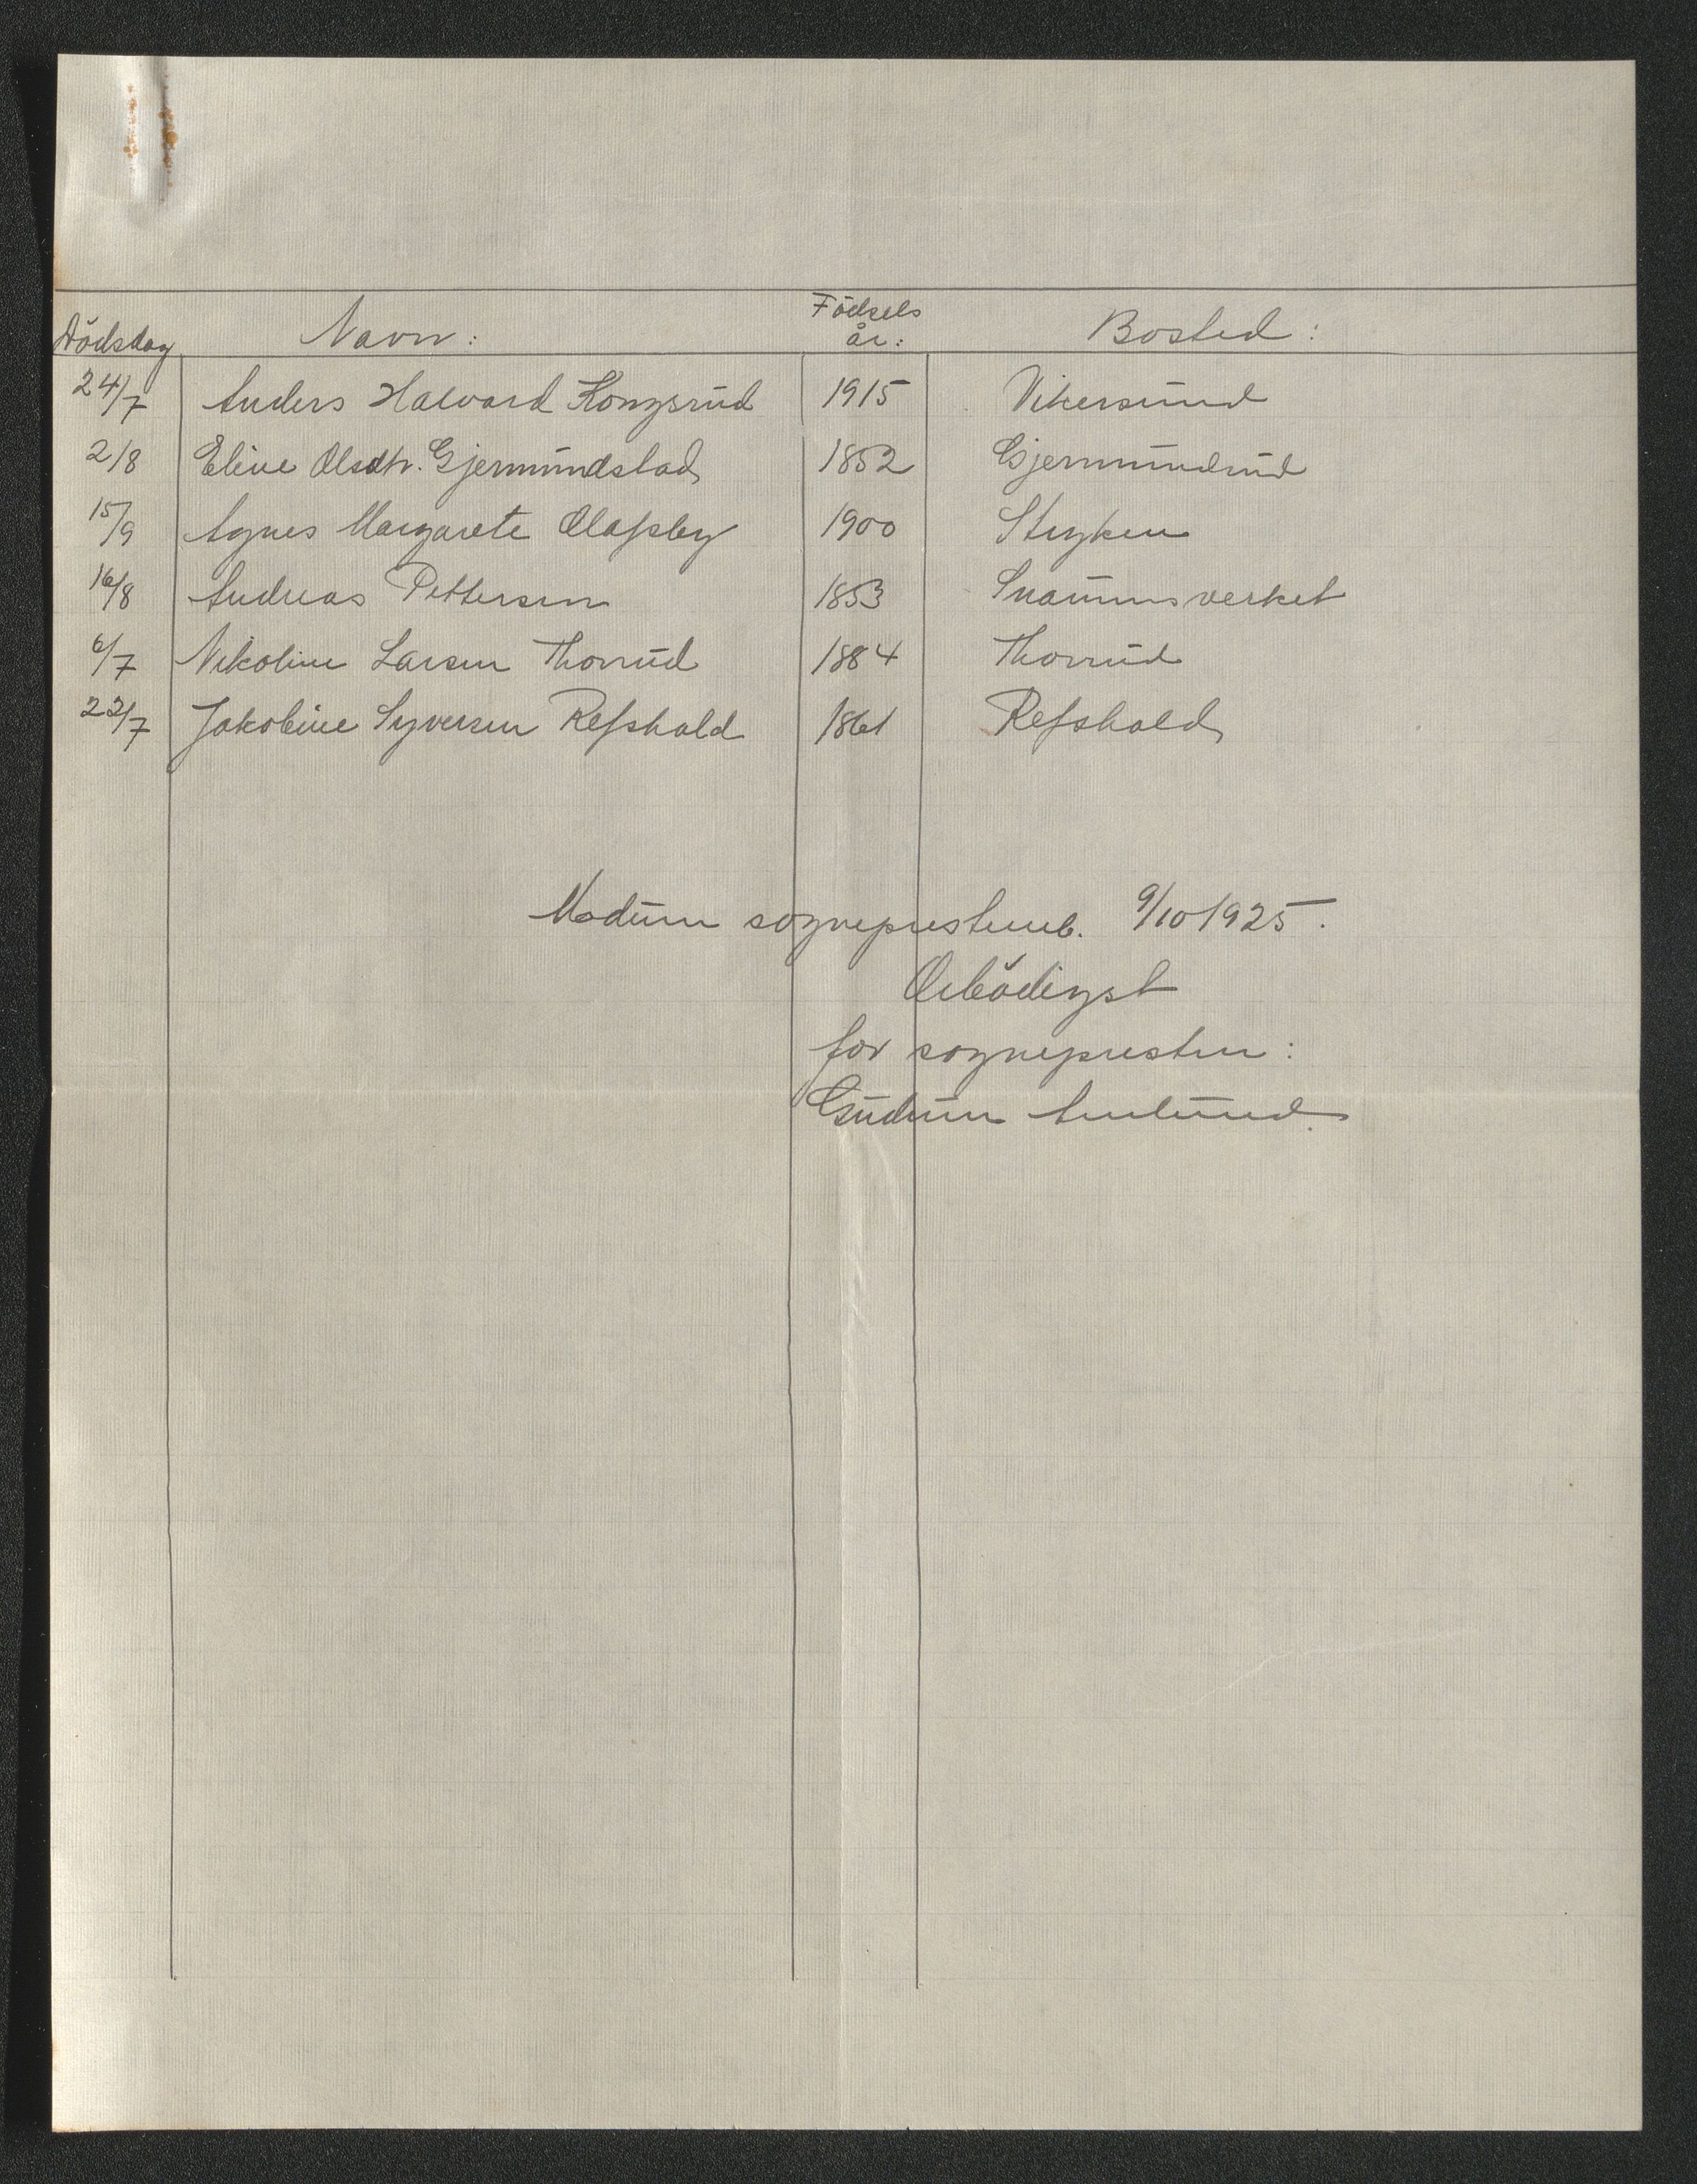 Dödsdag Navn: Födsels år: Bosted:
24/7 Anders Halvard Kongsrud 1915 Vikersund
2/8 Eline Olsdtr. Gjermundstad 1852 Gjermundrud
15/9 Agnes Margarete Olafsby 1900 Stryken
16/8 Andreas Pettersen 1853 Snarumsverket
6/7 Nikoline Larsen Thorrud 1884 Thorrud
22/7 Jakobine Syversen Refshald 1861 Refshald
Modum sogneprestemb. 9/10 1925.
Ærbödigst
for sognepresten:
Gudrun